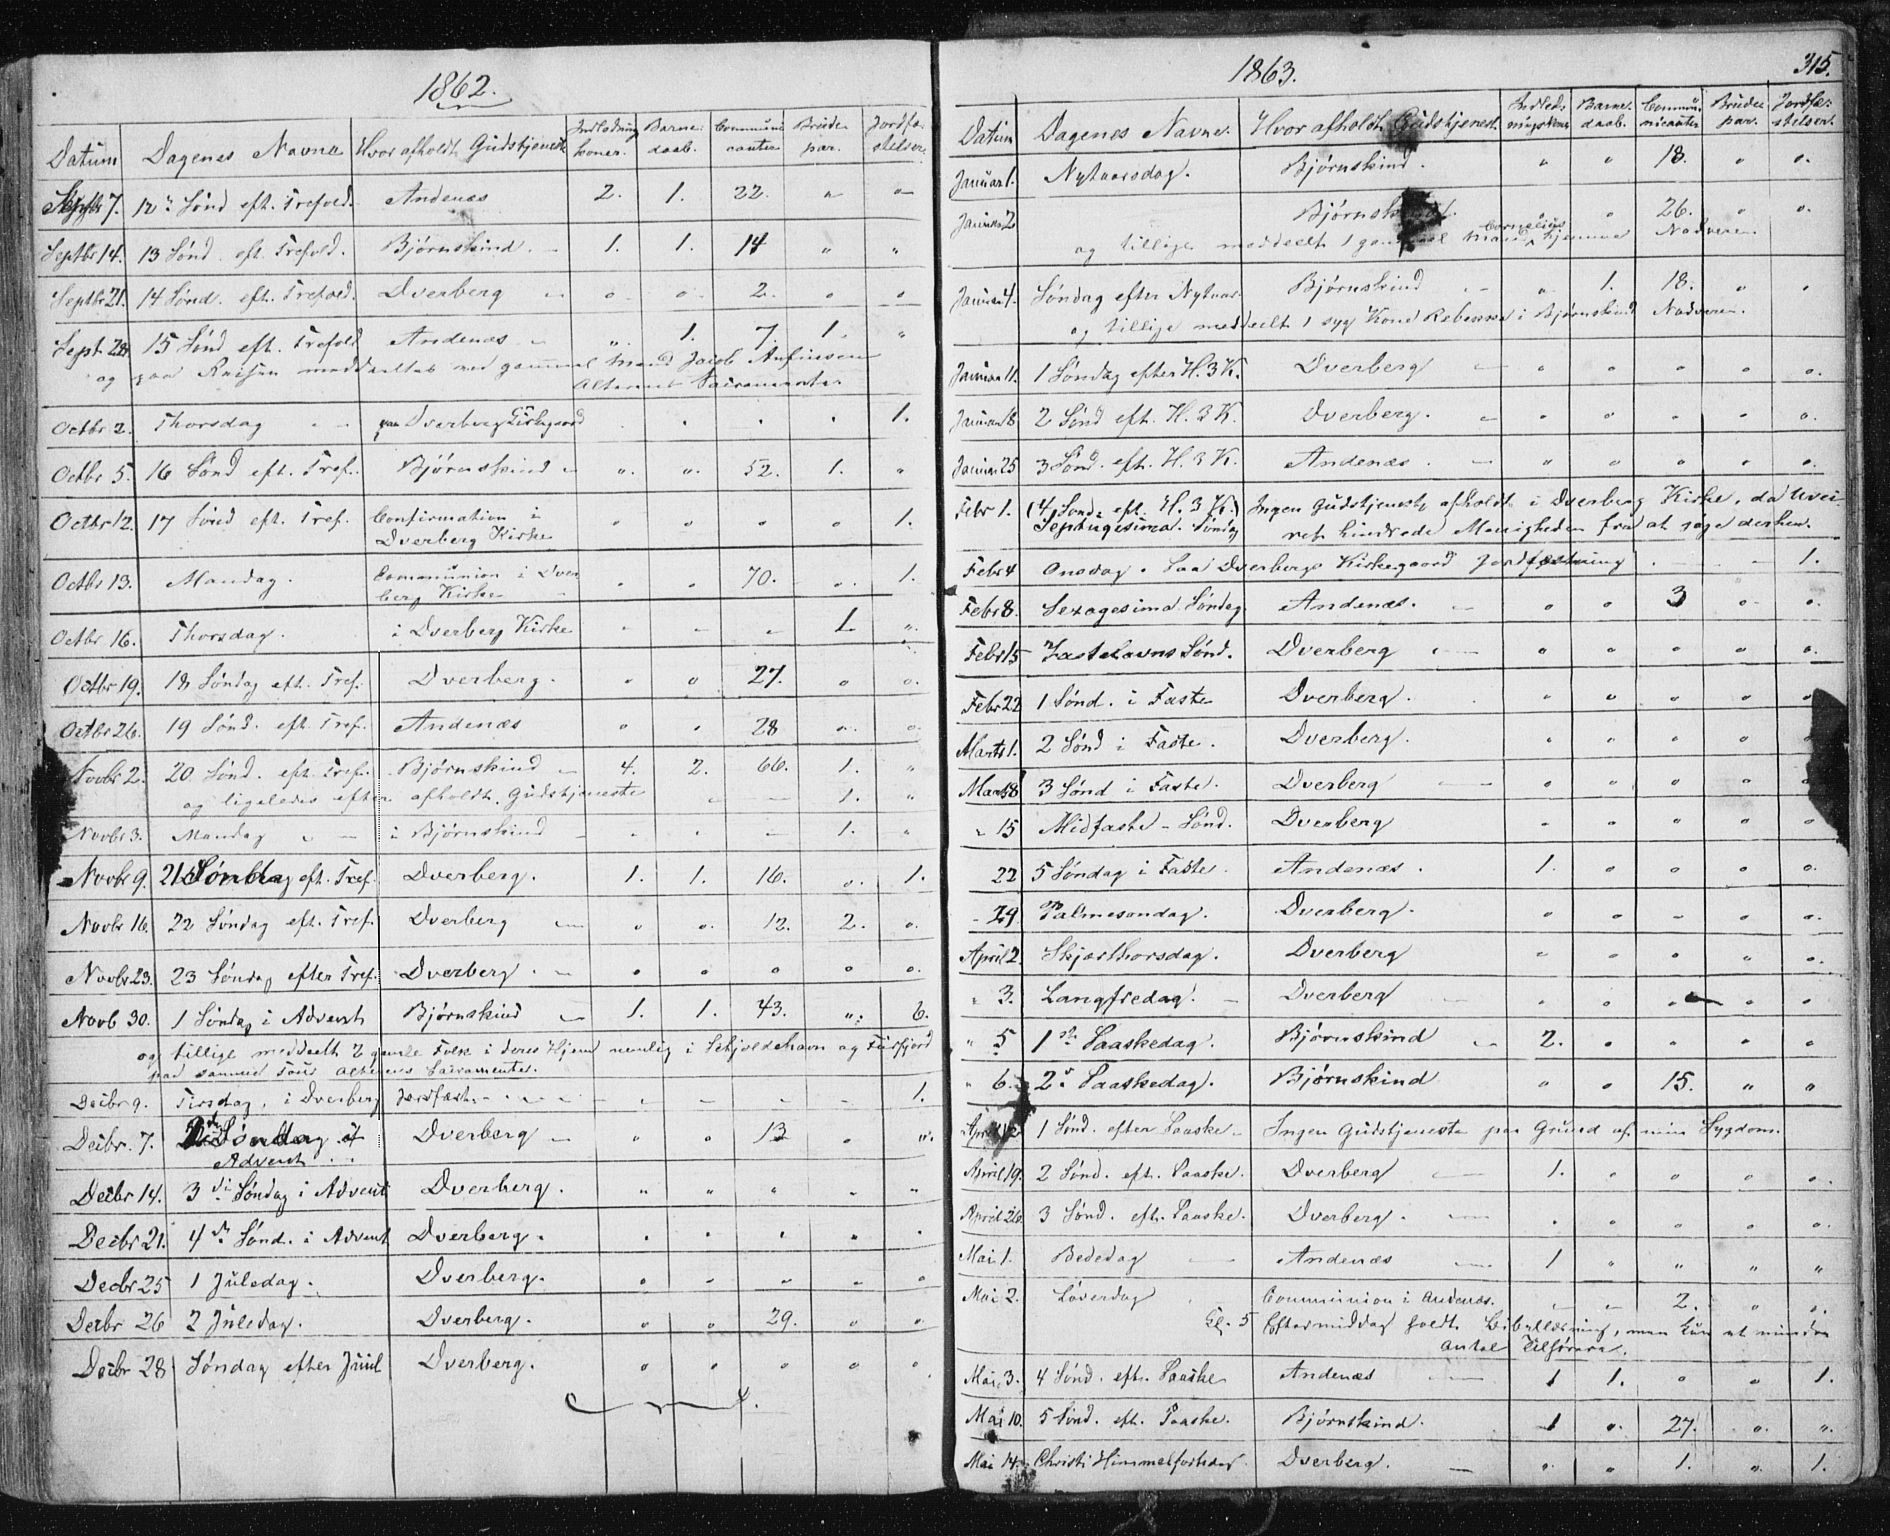 1862.
Datum Dagenes Navne Hvor afholdt Gudstjeneste Indledning koner. Barne daab. Communicanter Brude par. Jordfæstelser
Septbr 7. 12te Sønd eft. Trefold. Andenæs 2. 1. 22. " "
Septbr 14. 13 Sønd. eft. Trefold. Bjørnskind 1. 1. 14 " "
Septbr 21. 14 Sønd. eft. Trefold. Dverberg " " 2. " "
Sept 28. 15 Sønd eft. Trefold Andenæs " 1. 7. 1. "
og paa Reisen meddeeltes ved gammel Mand Jacob Anfinsen
Alterens Sacramenter
Octbr 2. Thorsdag paa Dverberg Kirkegaard " " " " 1.
Octbr 5. 16 Sønd eft. Tref. Bjørnskind " " 52. 1. "
Octbr 12. 17 Sønd eft. Tref. Confirmation i Dverberg Kirke " " " " 1.
Octbr 13. Mandag. Communion i Dverberg Kirke " " 70. " 1.
Octbr 16. Thorsdag. i Dverberg Kirke " " " 1. "
Octbr 19. 18 Søndag eft. Tref. Dverberg. " " 27. " "
Octbr 26. 19 Sønd. eft. Tref. Andenæs " " 28 " "
Novbr 2. 20 Sønd. eft. Tref. Bjørnskind 4. 2. 66. 1. "
og ligeledes efter afholdt Gudstjeneste 1. "
Novbr 3. Mandag i Bjørnskind " " " 1. "
Novbr 9. 21 Søndag eft. Tref Dverberg. 1. 1. 16. " 1.
Novbr 16. 22 Søndag eft. Tref. Dverberg " " 12. 2. "
Novbr 23. 23 Søndag efter Tref. Dverberg. " " " " "
Novb 30. 1 Søndag i Advent Bjørnskind 1. 1. 43. " 6.
og tillige meddeelt 2 gamle Folk i deres Hjem nemlig i Skjoldehavn og Fiisfjord
paa samme Tour Alterens Sacramenter.
Decbr 9. Tirsdag, i Dverberg Jordfæst. " " " " 1.
Decbr. 7. 2den Søndag i Advent Dverberg " " 13 " "
Decbr 14. 3die Søndag i Advent Dverberg. " " " " "
Decbr 21. 4de Sønd. i Advent Dverberg. " " " " "
Decbr 25 1 Juledag. Dverberg. " " " " "
Decbr 26 2 Juledag. Dverberg. " " 29. " "
Decbr 28 Søndag efter Juul Dverberg. " " " " "
1863.
315.
Datum Dagenes Navne. Hvor afholdt Gudstjeneste Indledningskoner Barnedaab. Communicanter Brudepar. Jordfæstelser.
Januar 1. Nytaarsdag. Bjørnskind. " " 18. " "
Januar 2 Bjørnskind. " 26. " "
og tillige meddeelt 1 gammel Mand Cornelius hjemme Nadveren
Januar 4. Søndag efter Nytaar Bjørnskind " 1. 18. " "
og tillige meddeelt 1 syg Kone Rebecca i Bjørnskind Nadveren.
Januar 11. 1 Søndag efter H. 3 K. Dverberg " " " " "
Januar 18 2 Sønd eft. H. 3 K. Dverberg. " " " " "
Januar 25 3 Sønd. eft. H. 3 K. Andenæs. " " " " "
Febr 1. (4 Sønd. eft. H. 3 K.) Septuagesima Søndag Ingen Gudstjeneste afholdt i Dverberg Kirke, da Uvei-
ret hindrede Menigheden fra at søge derhen.
Febr 4 Onsdag. Paa Dverbergs Kirkegaard Jordfæstning 1.
Febr 8. Sexagesima Søndag. Andenæs. " " 3 " "
Febr 15 Fastelavns Sønd. Dverberg " " " " "
Febr 22 1 Sønd. i Faste Dverberg. " " " " "
Marts 1. 2 Sønd i Faste. Dverberg. " " " " "
Marts 8 3 Sønd i Faste. Dverberg " " " " "
" 15 Midfaste-Sønd. Dverberg " " " " "
22 5 Søndag i Faste. Andenæs. 1. " " " "
" 29. Palmesøndag. Dverberg. " " " " "
April 2. Skjærthorsdag. Dverberg " " " " "
" 3. Langfredag. Dverberg " " " " "
" 5 1ste Paaskedag. Bjørnskind 2. " " " "
" 6. 2den Paaskedag. Bjørnskind " " 15. " "
April 12 1 Sønd. efter Paaske. Ingen Gudstjeneste paa Grund af min Sygdom.
April 19. 2 Sønd. eft. Paaske. Dverberg 1. " " " "
April 26. 3 Sønd. eft. Paaske. Dverberg. " " " " "
Mai 1. Bededag Andenæs 1 " " " "
Mai 2. Løverdag Communion i Andenæs. " " 2. " "
Kl. 5 Eftermiddag holdt Bibellæsning, men kun et mindre
Antal Tilhørere.
Mai 3. 4 Sønd. eft. Paaske Andenæs 1 1. " " 1.
Mai 10. 5 Sønd. eft. Paaske. Bjørnskind. 1 " 27. " "
Mai 14. Christi Himmelfartsdag. Dverberg. " " 1. " 1.